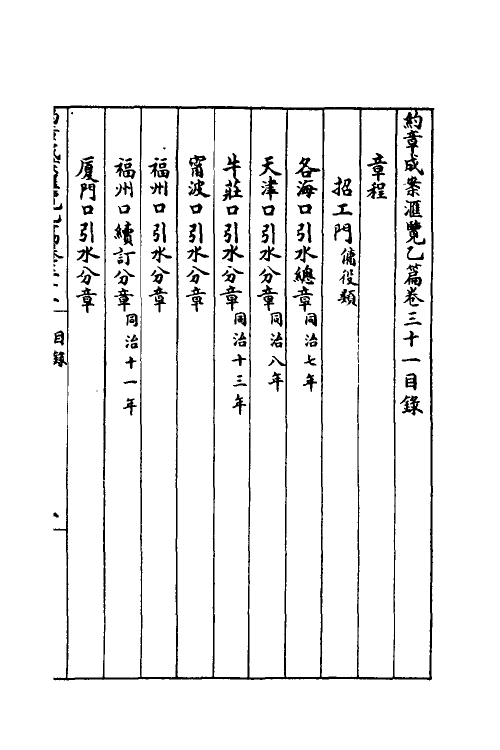 約章成案滙覽乙篇卷三十一目錄
章程
招工門傭役類
各海口引水總章同治七年
天津口引水分章同治八年
牛莊口引水分章同治十三年
甯波口引水分章
福州口引水分章
福州口續訂分章同治十一年
厦門口引水分章
目錄